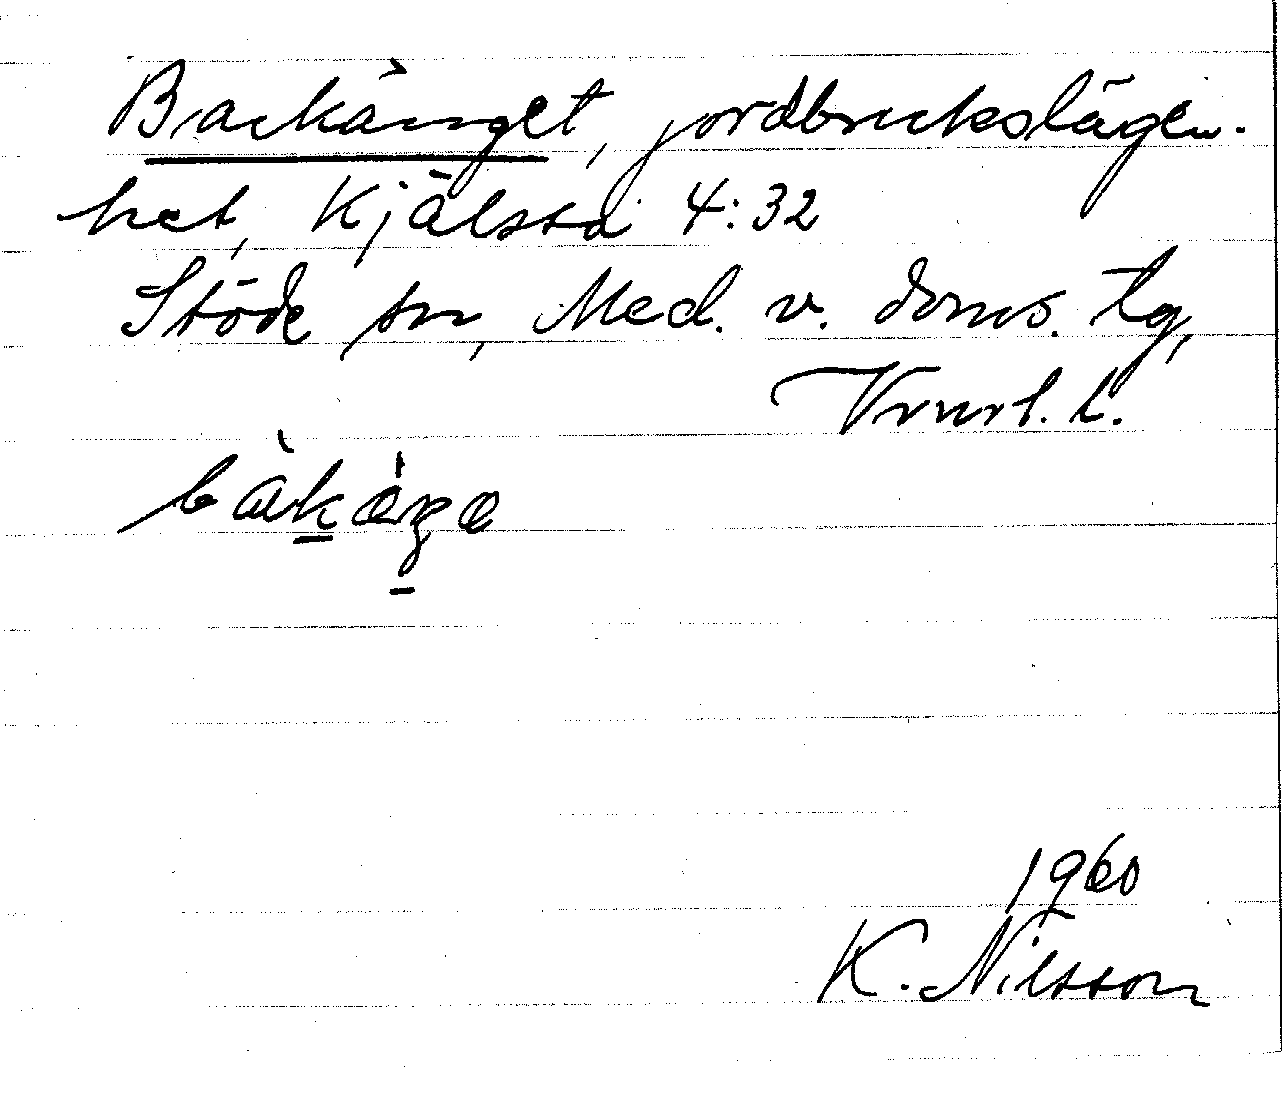 Backänget, jordbrukslägen-
het, Kjälsta 4:32
Stöde sn, Med. v. doms. tg,
Vrnrl. l.
bàkæ̀ŋæ
1960
K. Nilsson